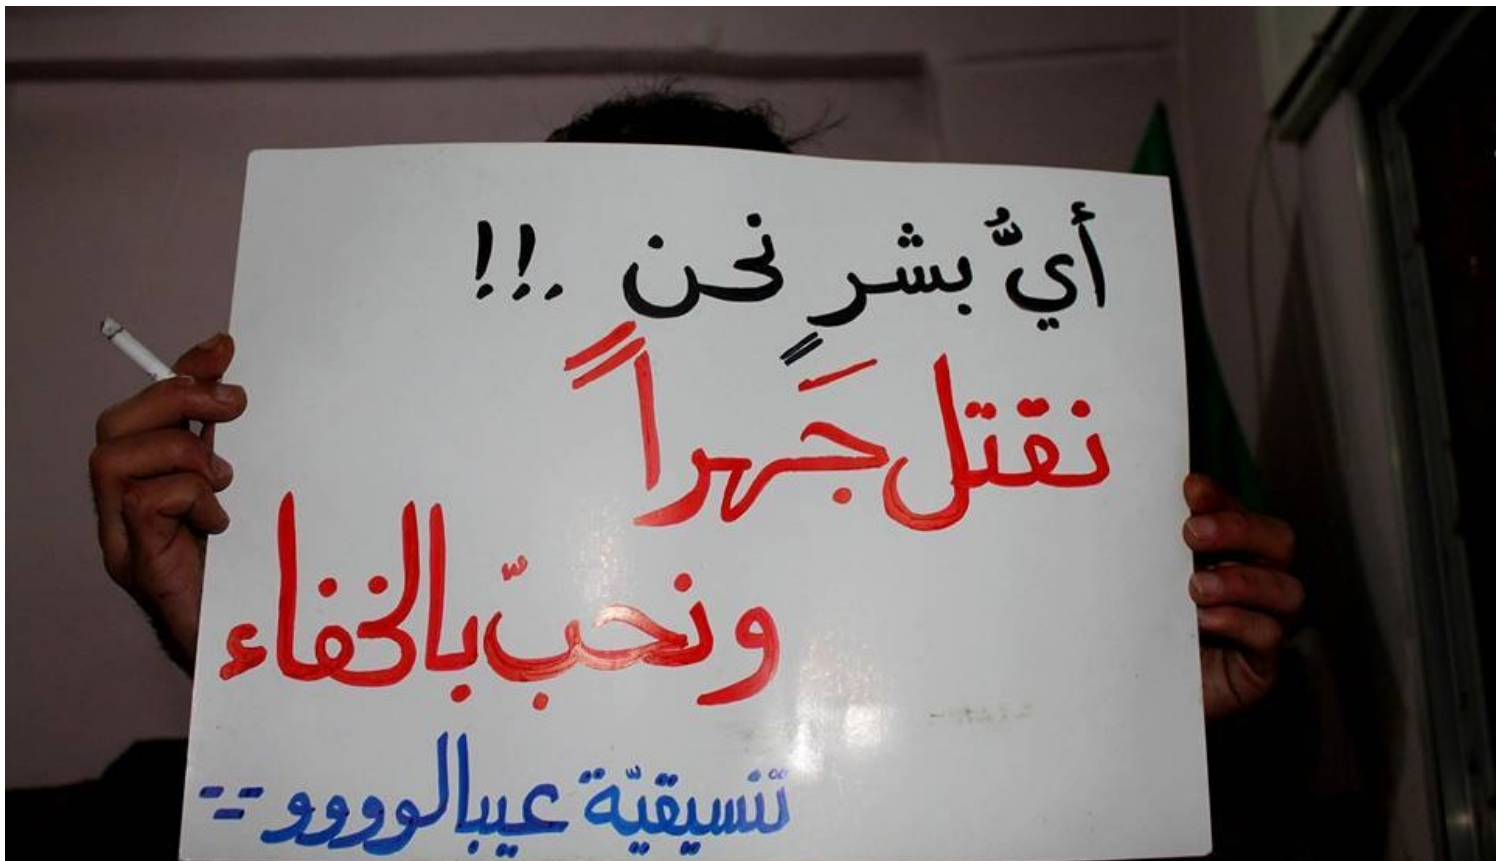 أيُّ بشرٍ نحن .!!
نقتل جَهراً
ونحبّ بالخفاء
تنسيقيّة عيبالوووو --